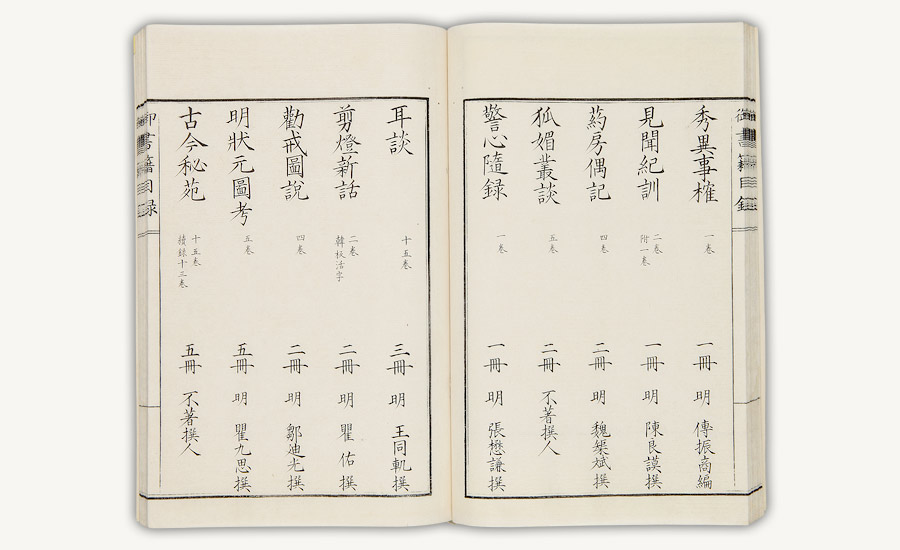 御書籍目録
秀異事榷 一卷 一冊 明 傳振商編
見聞紀訓 二卷 附一卷 一冊 明 陳良謨撰
葯房偶記 四卷 二冊 明 魏榘斌撰
狐媚叢談 五卷 二冊 不著撰人
警心隨録 一卷 一冊 明 張懋謙撰
耳談 十五卷 三冊 明 王同軌撰
剪燈新話 二卷 韓板活字 二冊 明 瞿佑撰
勸戒圖説 四卷 二冊 明 鄒迪光撰
明狀元圖考 五卷 五冊 明 瞿九思撰
古今秘苑 十五卷 續錄十三卷 五冊 不著撰人
御書籍目録